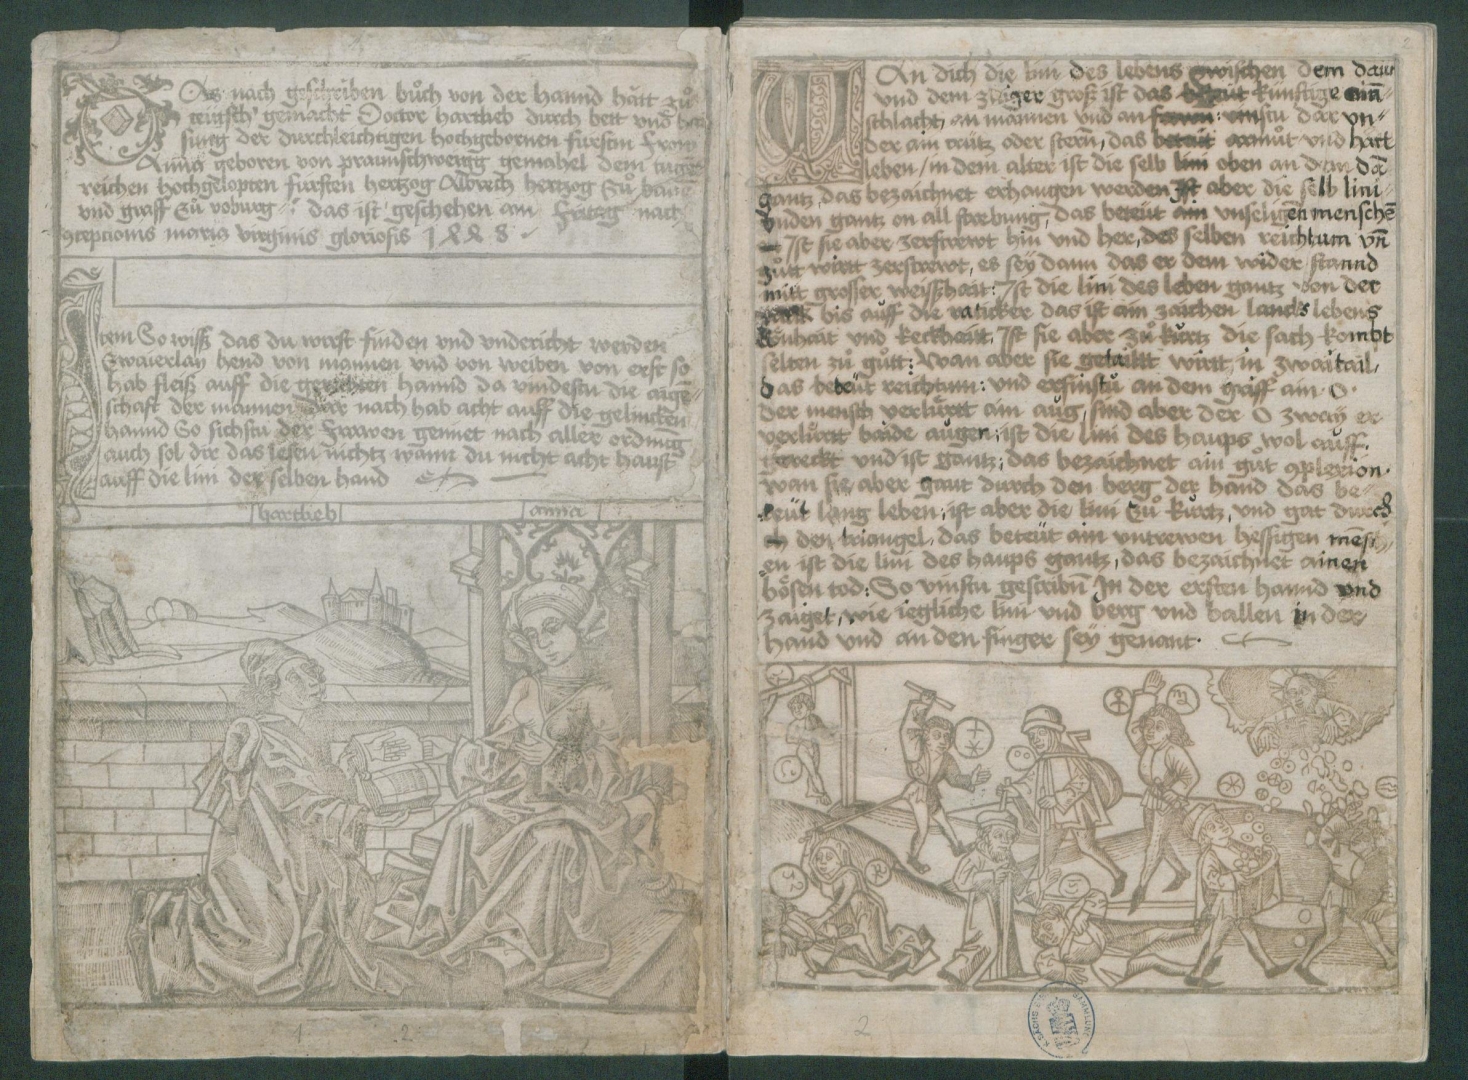 Das nach geschriben bůch von der hannd hätt zů
teutsch gemacht Doctor hartlieb durch bett vnd
sinng der durchleichtigen hochgebornen fürstin Fraw
Anna geboren von praunschweigg gemahel dem tuget
reichen hochgelopten fürsten hertzog Albrech hertzog zů
vnd graff zů voburg das ist geschehen am fritag nach
9cepcionis marie virginis gloriosis 1448
Item So wiss das du wirst finden vnd vndericht werden
Zwaierlay hend von mannen vnd von weiben von erst so
hab fleiß auff die gerechten hannd da vindestu die aige
schaft der mannen Dar nach hab acht auff die gelincken
hannd So sichstu der frawen geniet nach aller ordnug
auch sol dir das lesen nichtz wann du nicht acht haust
auff die lini der selben hand
hartlieb
anna
An dich die lini des lebens zwischen dem daum
vnd dem zaiger groß ist das beteut künftige ain
schlacht, an mannen vnd an frawen vnstu dar vn-
der ain crütz oder stern, das beteüt armůt vnd härt
leben / in dem alter ist die selb lini oben an dem da
gantz, das bezaichnet erhangen werden Jst aber die selb lini
vnden gantz on all strebung, das beteüt ain vnseligen menschē
Jst sie aber zerstrewt hin vnd her, des selben reichtum vn̄
gůtt wirtt zerstrewt, es sey dann das er dem wider stannd
mitt grosser weisshait: Jst die lini des leben gantz von der
bis auff die raticker das ist ain zaichen lancks lebens
Künhait vnd keckhaitt, Jst sie aber zů kurtz die sach kombt
selten zů gůtt: Wan aber sie getailtt wirtt in zwaitail,
das beteüt reichtum: vnd ersuistu an dem griff ain O
der mensch verlürtt ain aug, sind aber der O zway er
verlürtt baide augen, ist die lini des haups wol auff
gereckt vnd ist gantz, das bezaichnet ain gůt 9plexion
wan sie aber gaut durch den berg der hand das be-
teüt lang leben, ist aber die lini zů kürtz, vnd gat durch
ch den triangel, das beteüt ain vntrewen hessigen mēsch
en ist die lini des haups gantz, das bezaichnet ainen
bösen tod: So vinstu gescribn̄ Jn der ersten hannd vnd
zaiget, wie iegliche lini vnd berg vnd ballen in der
hand vnd an den finger sey genant
1
2
2